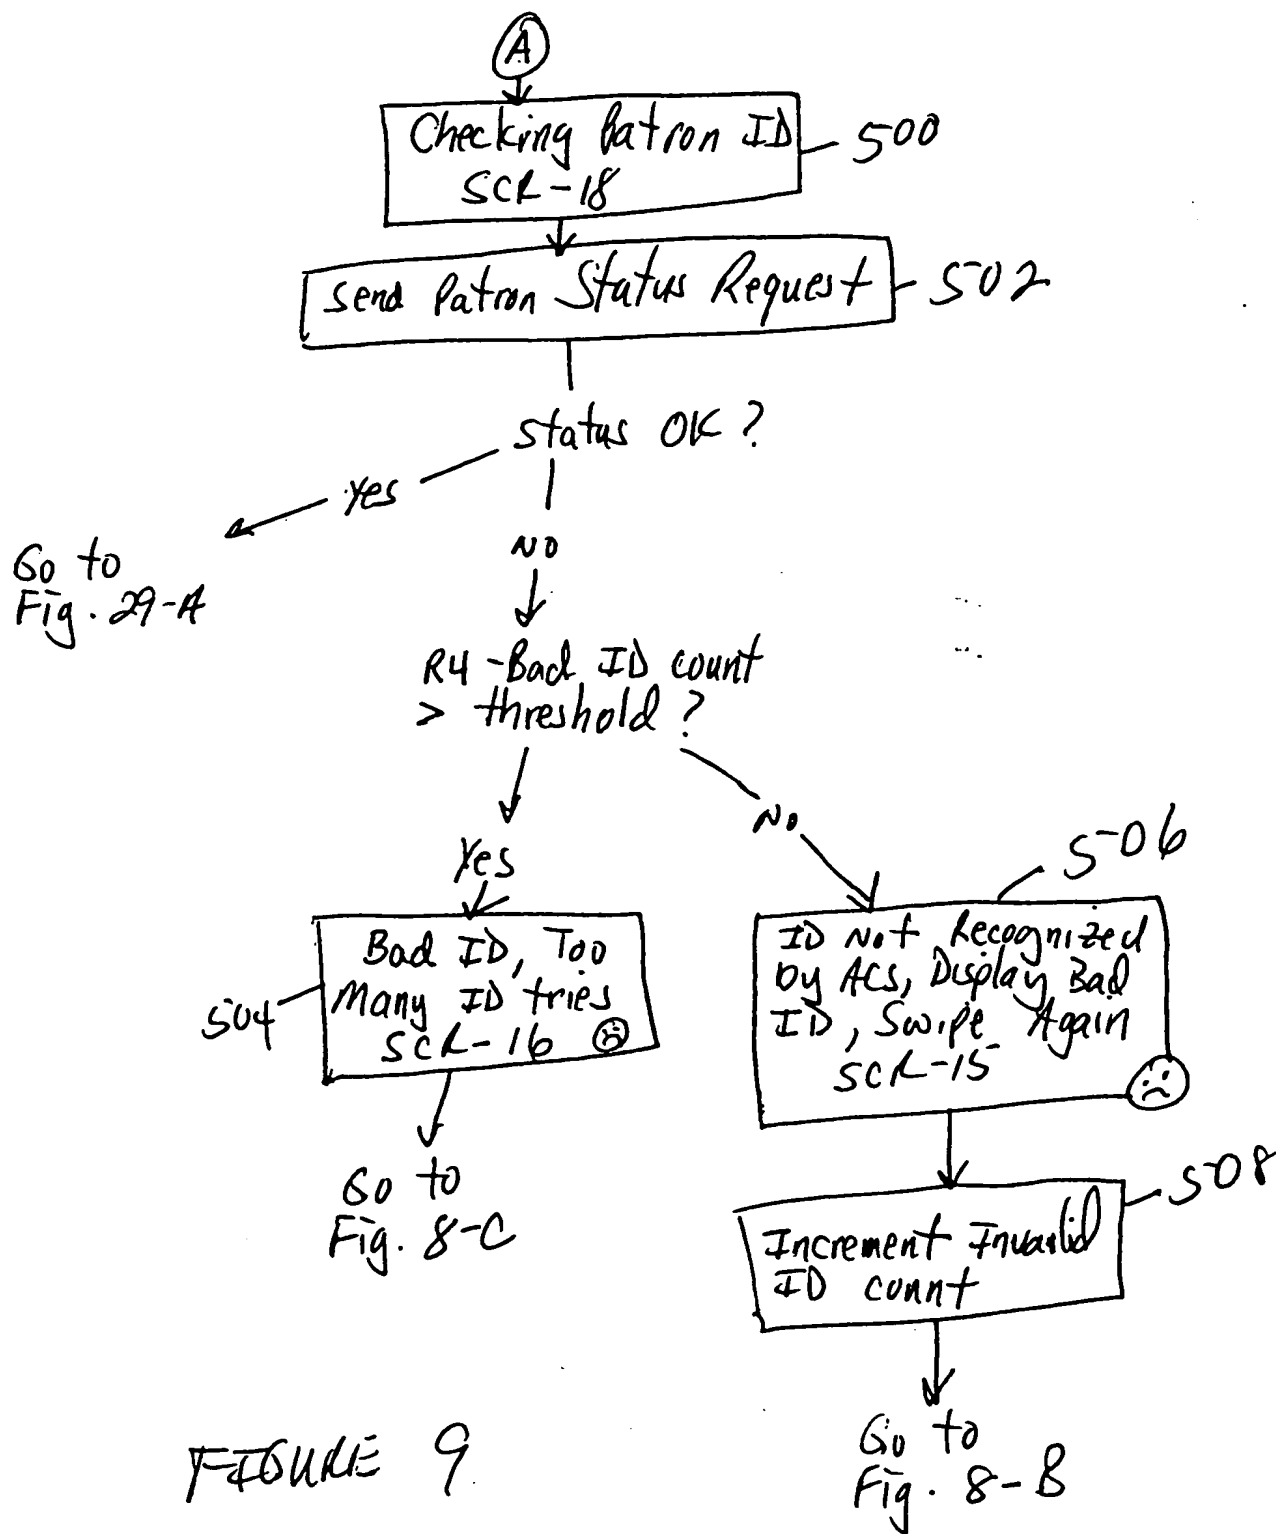 A
Checking Patron ID
SCR-18
500
Send Patron Status Request
502
Status OK?
Yes
No
Go to
Fig. 29-A
R4-Bad ID count
> threshold?
Yes
No
506
Bad ID, Too
Many ID tries
SCR-16
504
ID Not Recognized
by ACS, Display Bad
ID, Swipe Again
SCR-15
Go to
Fig. 8-C
508
Increment Invalid
ID count
Go to
Fig. 8-B
FIGURE 9